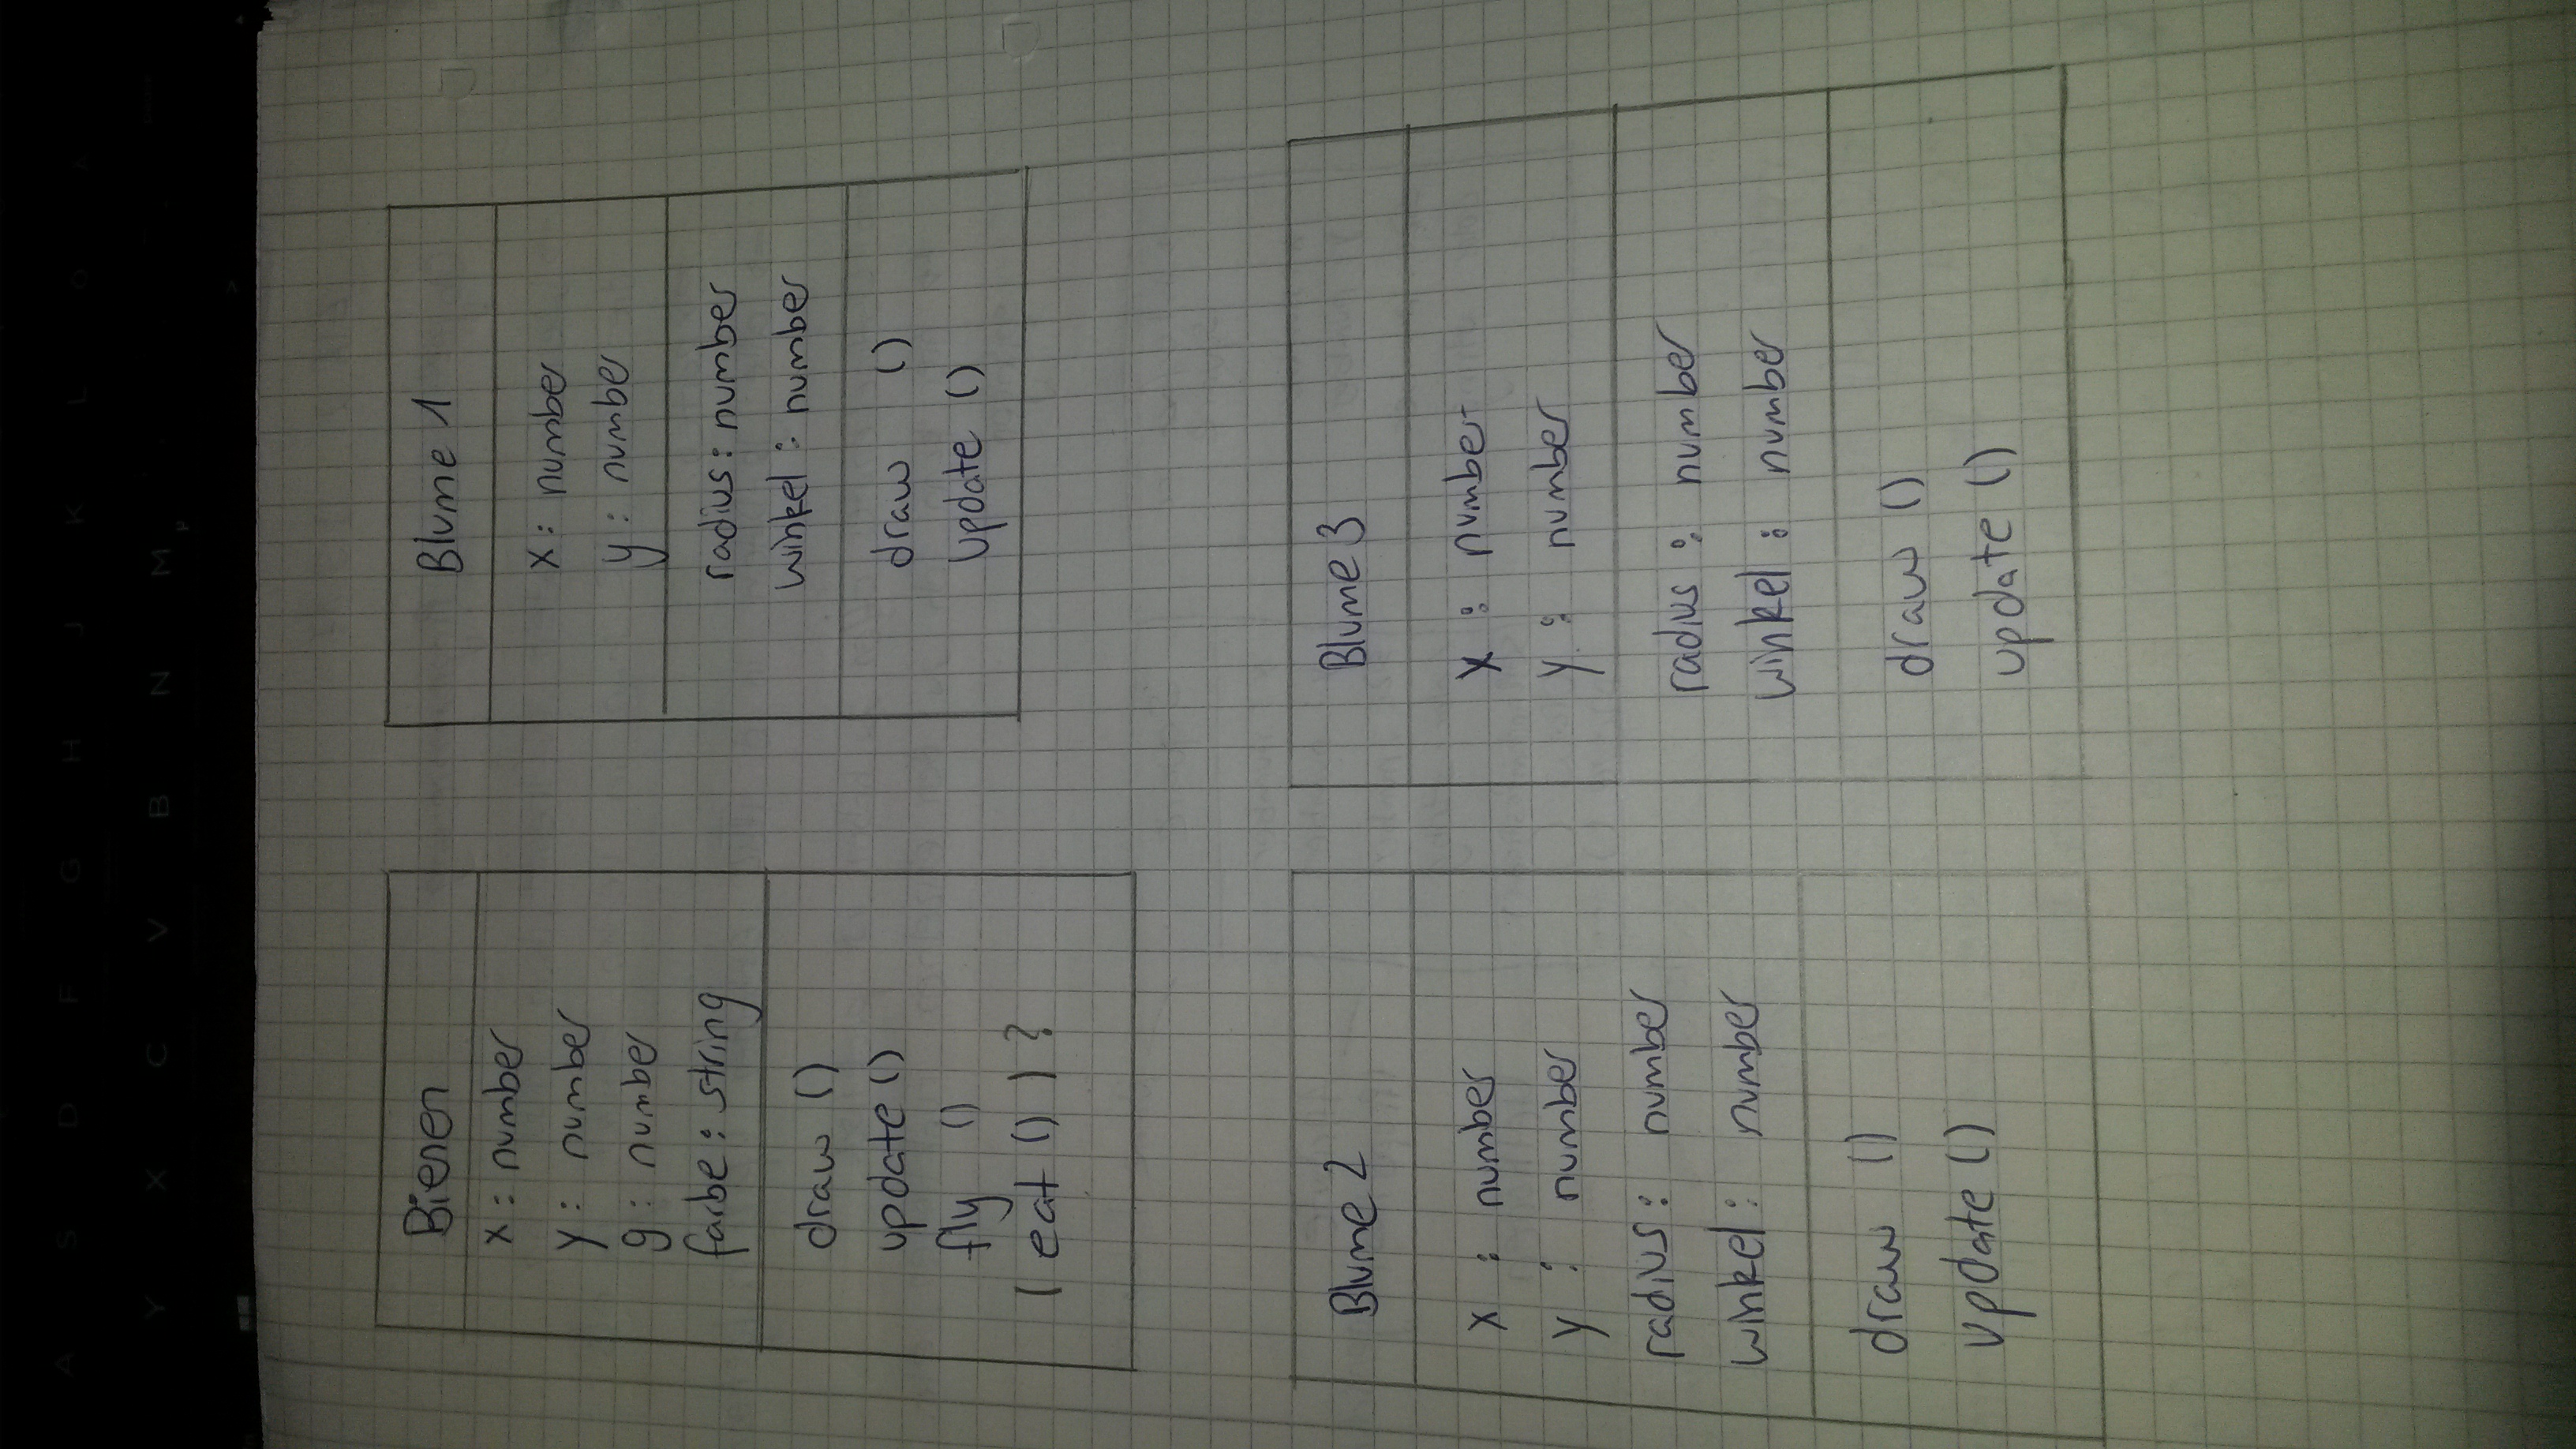 A S D F G H J K L Ö Ä
Y X C V B N M
µ
Bienen
x : number
y : number
g : number
farbe : string
draw ()
update ()
fly ()
( eat () ) ?
Blume 1
x : number
y : number
radius : number
winkel : number
draw ()
update ()
Blume 2
x : number
y : number
radius : number
winkel : number
draw ()
update ()
Blume 3
x : number
y : number
radius : number
winkel : number
draw ()
update ()